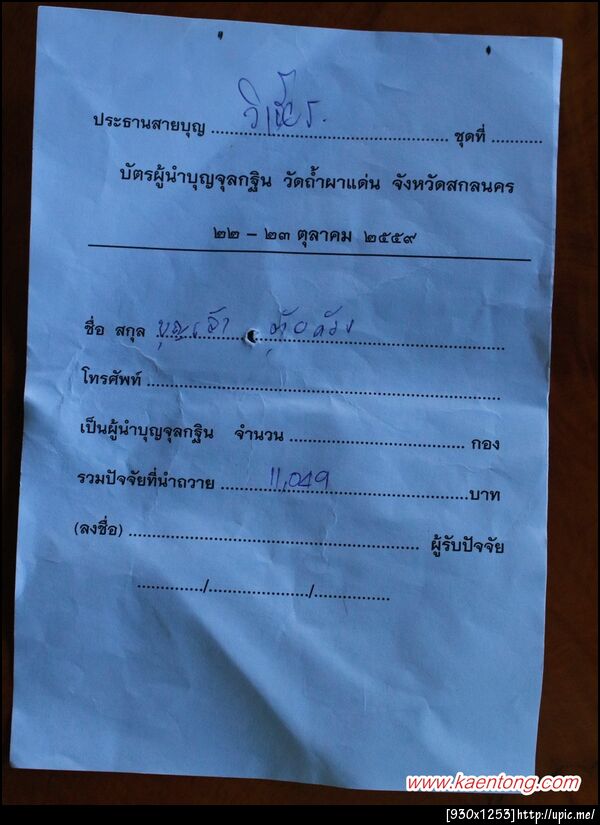 ประธานสายบุญ วิเชียร ชุดที่
บัตรผู้นำบุญจุลกฐิน วัดถ้ำผาแด่น จังหวัดสกลนคร
๒๒ - ๒๓ ตุลาคม ๒๕๕๙
ชื่อ สกุล
โทรศัพท์
เป็นผู้นำบุญจุลกฐิน จำนวน กอง
รวมปัจจัยที่นำถวาย 11,049 บาท
(ลงชื่อ) ผู้รับปัจจัย
/ /
www.kaentong.com
[930x1253]http://upic.me/